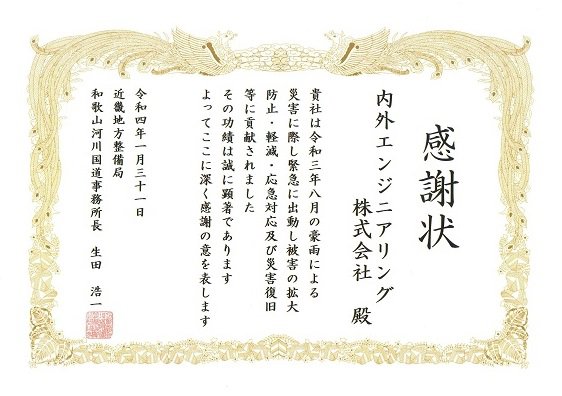 感謝状
内外エンジニアリング
株式会社 殿
貴社は令和三年八月の豪雨による
災害に際し緊急に出動し被害の拡大
防止・軽減・応急対応及び災害復旧
等に貢献されました
その功績は誠に顕著であります
よってここに深く感謝の意を表します
令和四年一月三十一日
近畿地方整備局
和歌山河川国道事務所長 生田 浩一